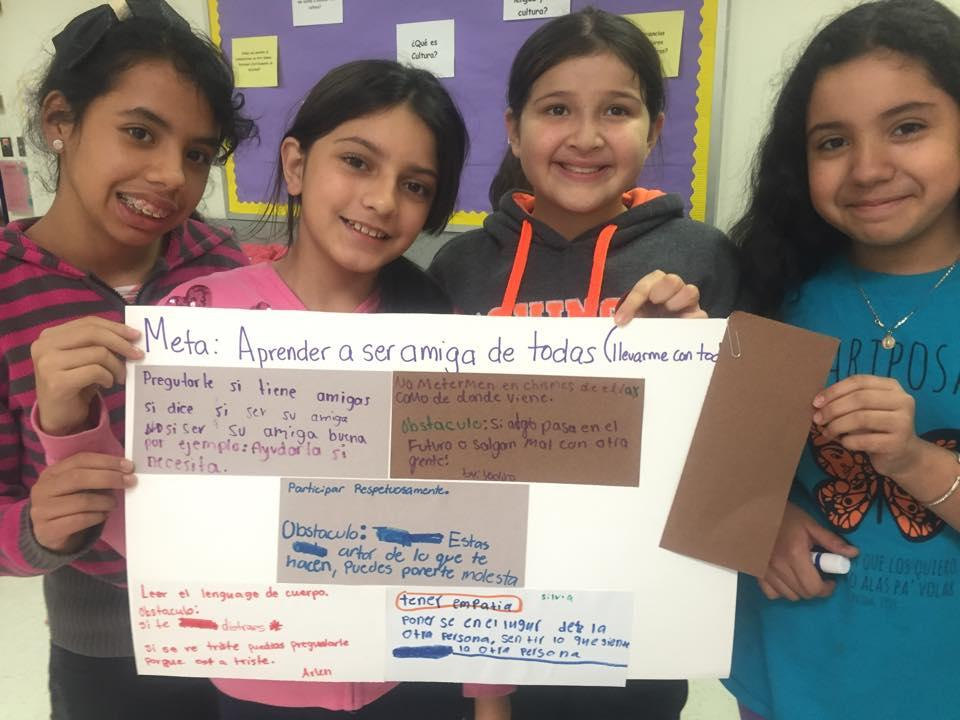 ¿Qué es
Cultura?
cultura?
Meta: Aprender a ser amiga de todas (llevarme con tod
Pregutarle si tiene amigas
si dice si ser su amiga
No si ser su amiga buena
por ejemplo: Ayudarla si
necesita.
No Metermen en chismes de ellas
como de donde viene.
Obstaculo: si algo pasa en el
Futuro o salgan mal con otra
gente.
Participar Respetuosamente.
Obstaculo: Estas
artor de lo que te
hacen, puedes ponerte molesta
Leer el lenguage de cuerpo.
Obstaculo:
si te distraes
Si se ve triste puedias pregutarle
porque est a triste.
Arlen
tener empatia
silvia
poner se en el lugar de la
otra persona, sentir lo que siente
la otra persona
ARIPOS
QUE LOS QUIERO
O ALAS PA' VOLAR